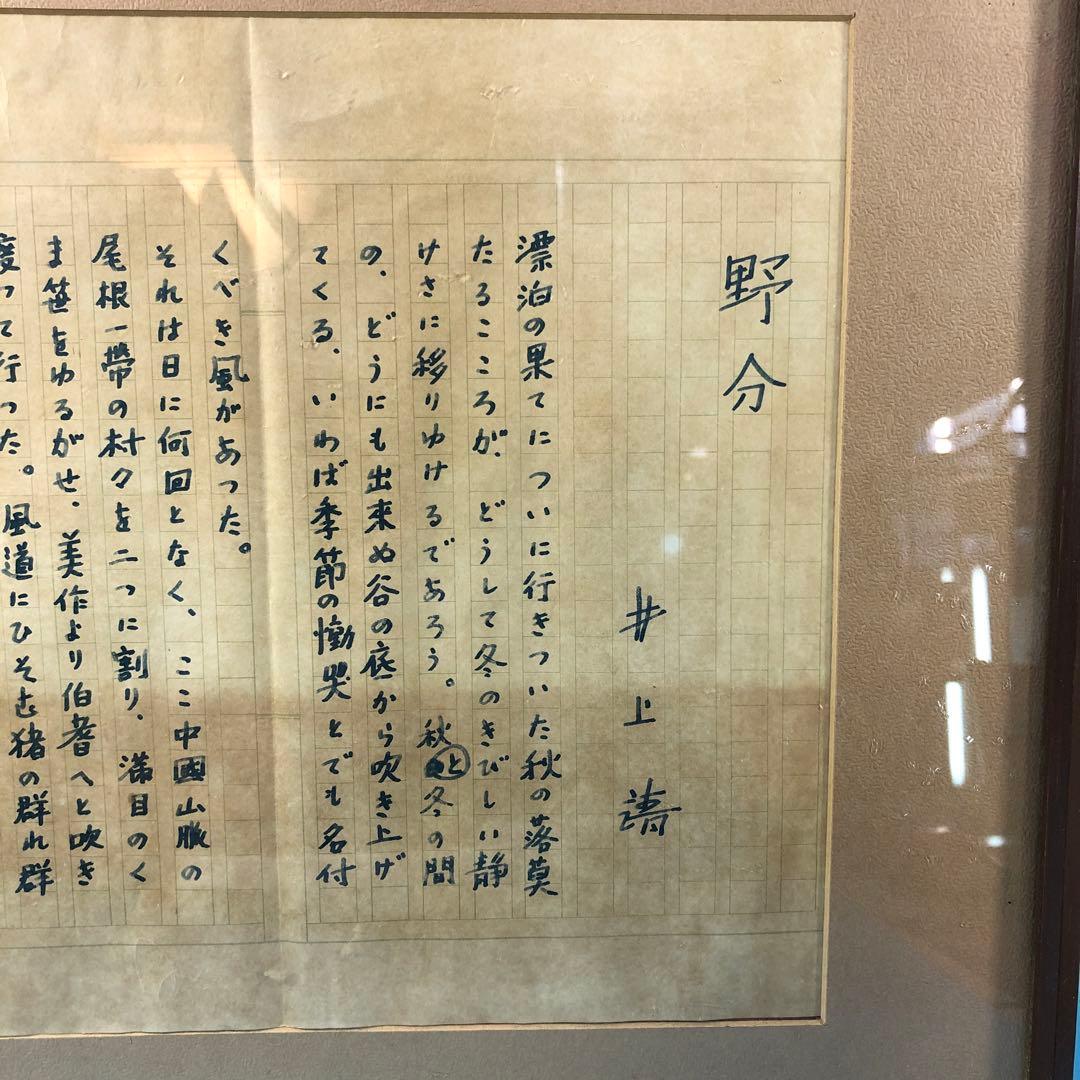 野分
井上靖
漂泊の果てについに行きついた秋の落莫
たるこころが、どうして冬のきびしい静
けさに移りゆけるであろう。秋と冬の間
の、どうにも出来ぬ谷の底から吹き上げ
てくる、いわば季節の慟哭とでも名付
くべき風があった。
それは日に何回となく、ここ中國山脈の
尾根一帶の村々を二つに割り、満目のく
ま笹をゆるがせ、美作より伯耆へと吹き
渡って行った。風道にひそむ猪の群れ群